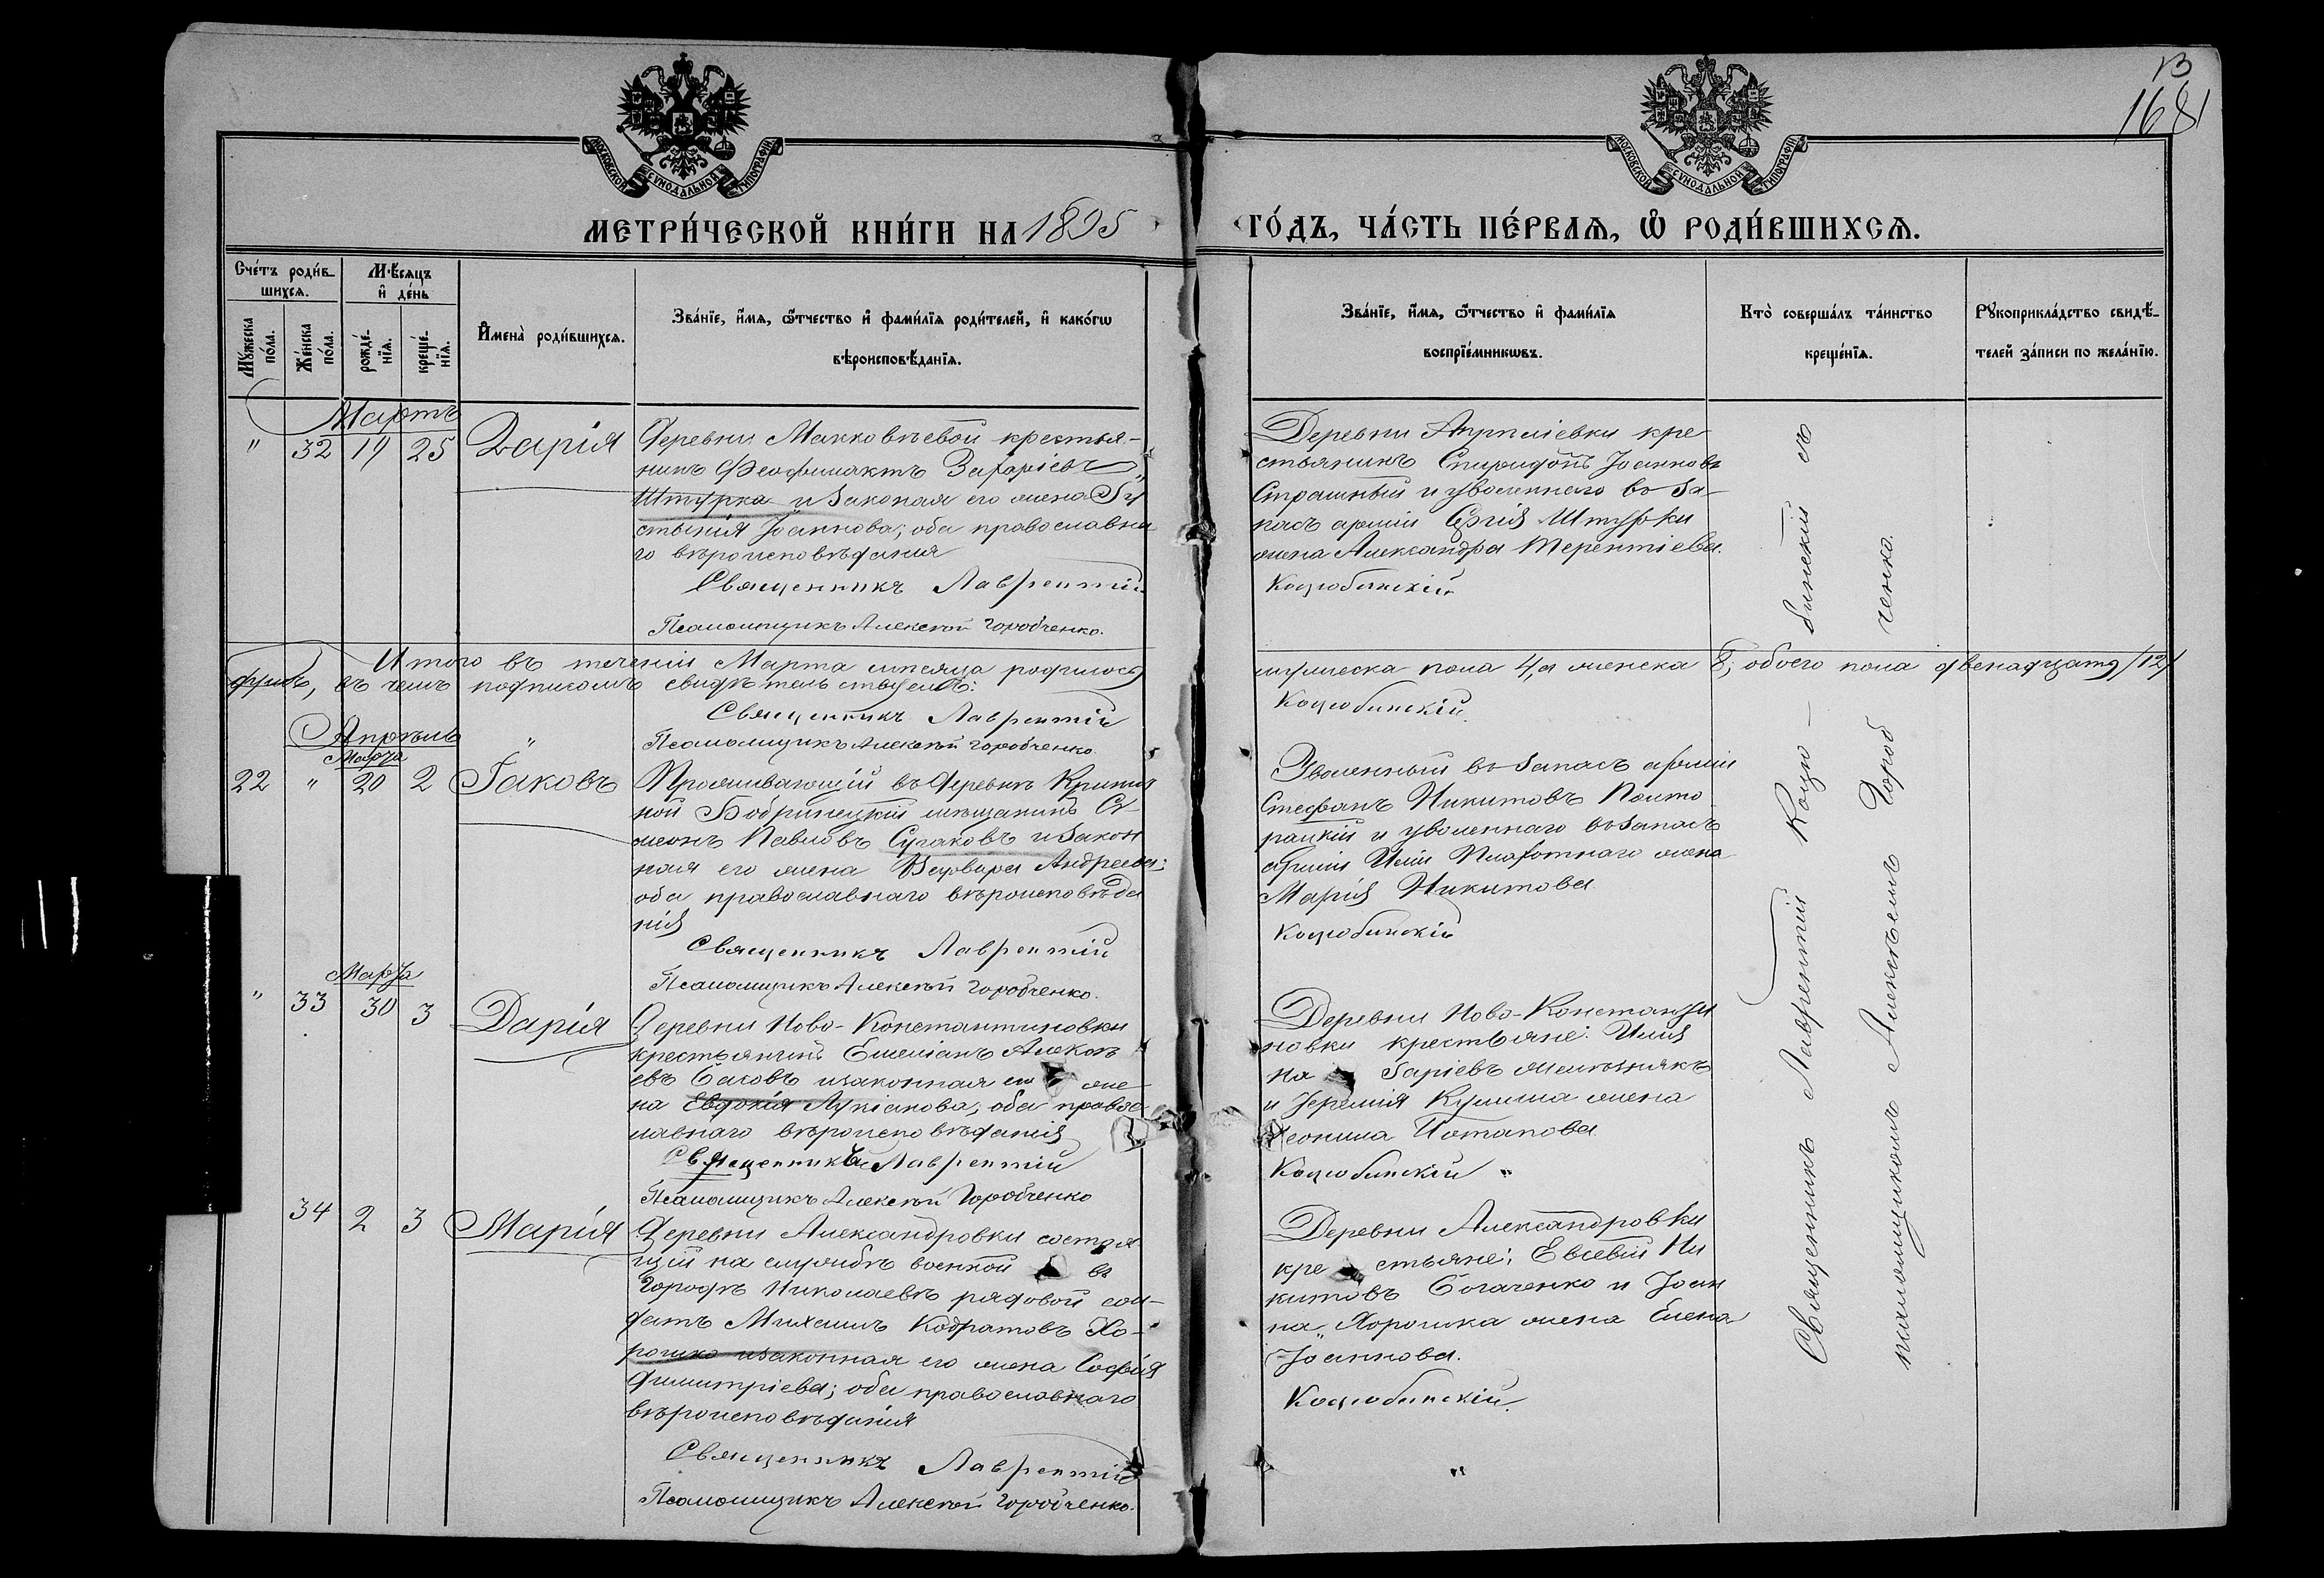 13
1681
МОСКОВСКОЙ СѴНОДАЛЬНОЙ ТИПОГРАФІИ
МОСКОВСКОЙ СѴНОДАЛЬНОЙ ТИПОГРАФІИ
МЕТРИ́ЧЕСКОЙ КНИ́ГИ НА 1895
ГО́ДЪ, ЧА́СТЬ ПЕ́РВАѦ, Ѡ҆ РОДИ́ВШИХСѦ.
Сче́тъ роди́в-
шихсѧ.
Мꙋ́жеска по́ла.
Же́нска по́ла.
Мѣ́сѧцъ
и҆ де́нь
рожде́-
нїѧ.
креще́-
нїѧ.
И҆мена̀ роди́вшихсѧ.
Зва́нїе, и҆́мѧ, ѻ҆́тчество и҆ фами́лїѧ роди́телей, и҆ како́гѡ
вѣроисповѣ́данїѧ.
Зва́нїе, и҆́мѧ, ѻ҆́тчество и҆ фами́лїѧ
воспрїе́мникѡвъ.
Кто̀ соверша́лъ та́инство
креще́нїѧ.
Рꙋкоприкла́дство свидѣ́-
телей за́писи по жела́нїю.
Мартъ
" 32 19 25 Дарія
Деревни Маковѣевой крестья-
нинъ Феофилактъ Захаріевъ
Штурка и законая его жена Іу
стинія Іоаннова; оба православна
го вѣроисповѣданія
Священникъ Лаврентій
Псаломщикъ Алексѣй Городченко.
Деревни кре
стьянинъ Спиридонъ Іоанновъ
Страшный и уволеннаго въ за-
пасъ арміи Сергія Штурки
жена Александра Терентіева.
Коцюбинскій
Итого въ теченіи Марта мѣсяца родилось
мужеска пола 4, а женска 8, обоего пола двенадцать /12/
душъ, въ чемъ подписомъ свидѣтельствуемъ:
Священникъ Лаврентій
Коцюбинскій.
Псаломщикъ Алексѣй Городченко.
Апрѣль
Марта
22 " 20 2 Іаковъ
Проживающій въ деревнѣ Кринич
ной Бобринецкій мѣщанинъ Си
меонъ Павловъ Сугаковъ и закон
ная его жена Варвара Андреева;
оба православнаго вѣроисповѣда
нія
Священникъ Лаврентій
Псаломщикъ Алексѣй Городченко.
Уволенный въ запасъ арміи
Стефанъ Никитовъ Полто
рацкій и уволеннаго въ запасъ
арміи Иліи Платотнаго жена
Марія Никитова
Коцюбинскій
Марта
" 33 30 3 Дарія
Деревни Ново-Константиновки
крестьянинъ Емеліанъ Алексѣ
евъ Басовъ и законная его же
на Евдокія Лукіанова; оба право
славнаго вѣроисповѣданія
Священникъ Лаврентій
Псаломщикъ Алексѣй Городченко
Деревни Ново-Константи
новки крестьяне: Илія
Мельникъ
и Іеремія Кулиша жена
Леонила Потапова
Коцюбинскій "
34 2 3 Марія
Деревни Александровки состоя
щій на службѣ военной въ
городѣ Николаевѣ рядовой сол-
датъ Михаилъ Кодратовъ Хо-
рошко и законная его жена Софія
Димитріева; оба православнаго
вѣроисповѣданія
Священникъ Лаврентій
Псаломщикъ Алексѣй Городченко.
Деревни Александровки
крестьяне: Евсевій Ни
китовъ Богаченко и Іоан
на Хорошка жена Елена
Іоаннова.
Коцюбинскій.
"
Священникъ Лаврентій Коцю-бинскій съ
псаломщикомъ Алексѣемъ Городченко.